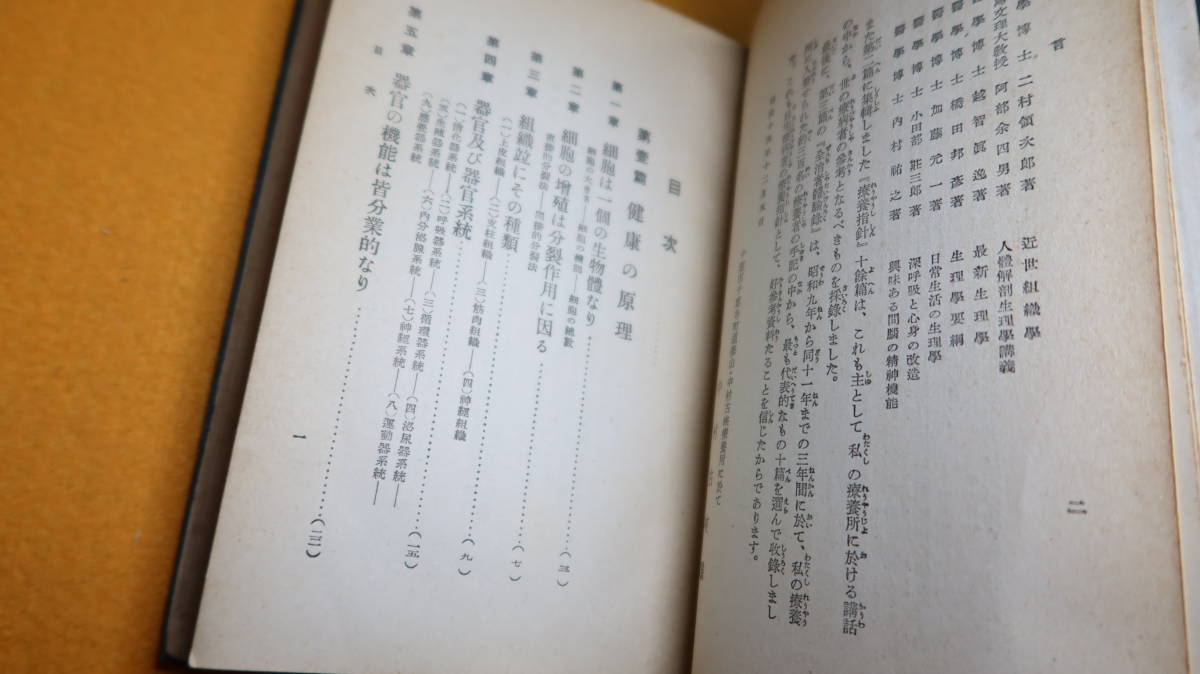 言
二
學博士 二村領次郎著 近世組織學
文理大教授 阿部余四男著 人體解剖生理學講義
學博士 越智眞逸著 最新生理學
醫學博士 橋田邦彥著 生理學要綱
醫學博士 加藤元一著 日常生活の生理學
醫學博士 小田部莊三郎著 深呼吸と心身の改造
醫學博士 內村祐之著 興味ある問題の精神機能
また第二篇に集輯しました『療養指針』十餘篇は、これも主として私の療養所に於ける講話
の中から、世の療病者の參考となるべきものを採錄しました。
最後に、第三篇の『全治者體驗錄』は、昭和九年から同十一年までの三年間に於て、私の療養
所に於ける約三百名の療養者の手記の中から、最も代表的なもの十篇を選んで收錄しまし
た。これも、好參考資料たることを信じたからであります。
目次
第壹篇 健康の原理
第一章 細胞は一個の生物體なり
細胞の大きさ——細胞の種類——細胞の總數
第二章 細胞の增殖は分裂作用に因る……(三)
直接的分裂法——間接的分裂法
第三章 組織竝にその種類……(七)
(一)上皮組織——(二)支柱組織——(三)筋肉組織——(四)神經組織
第四章 器官及び器官系統……(九)
(一)消化器系統——(二)呼吸器系統——(三)循環器系統——(四)泌尿器系統——
(五)生殖器系統——(六)內分泌腺系統——(七)神經系統——(八)運動器系統——
(九)感覺器系統……(一五)
第五章 器官の機能は皆分業的なり……(二二)
目次
一